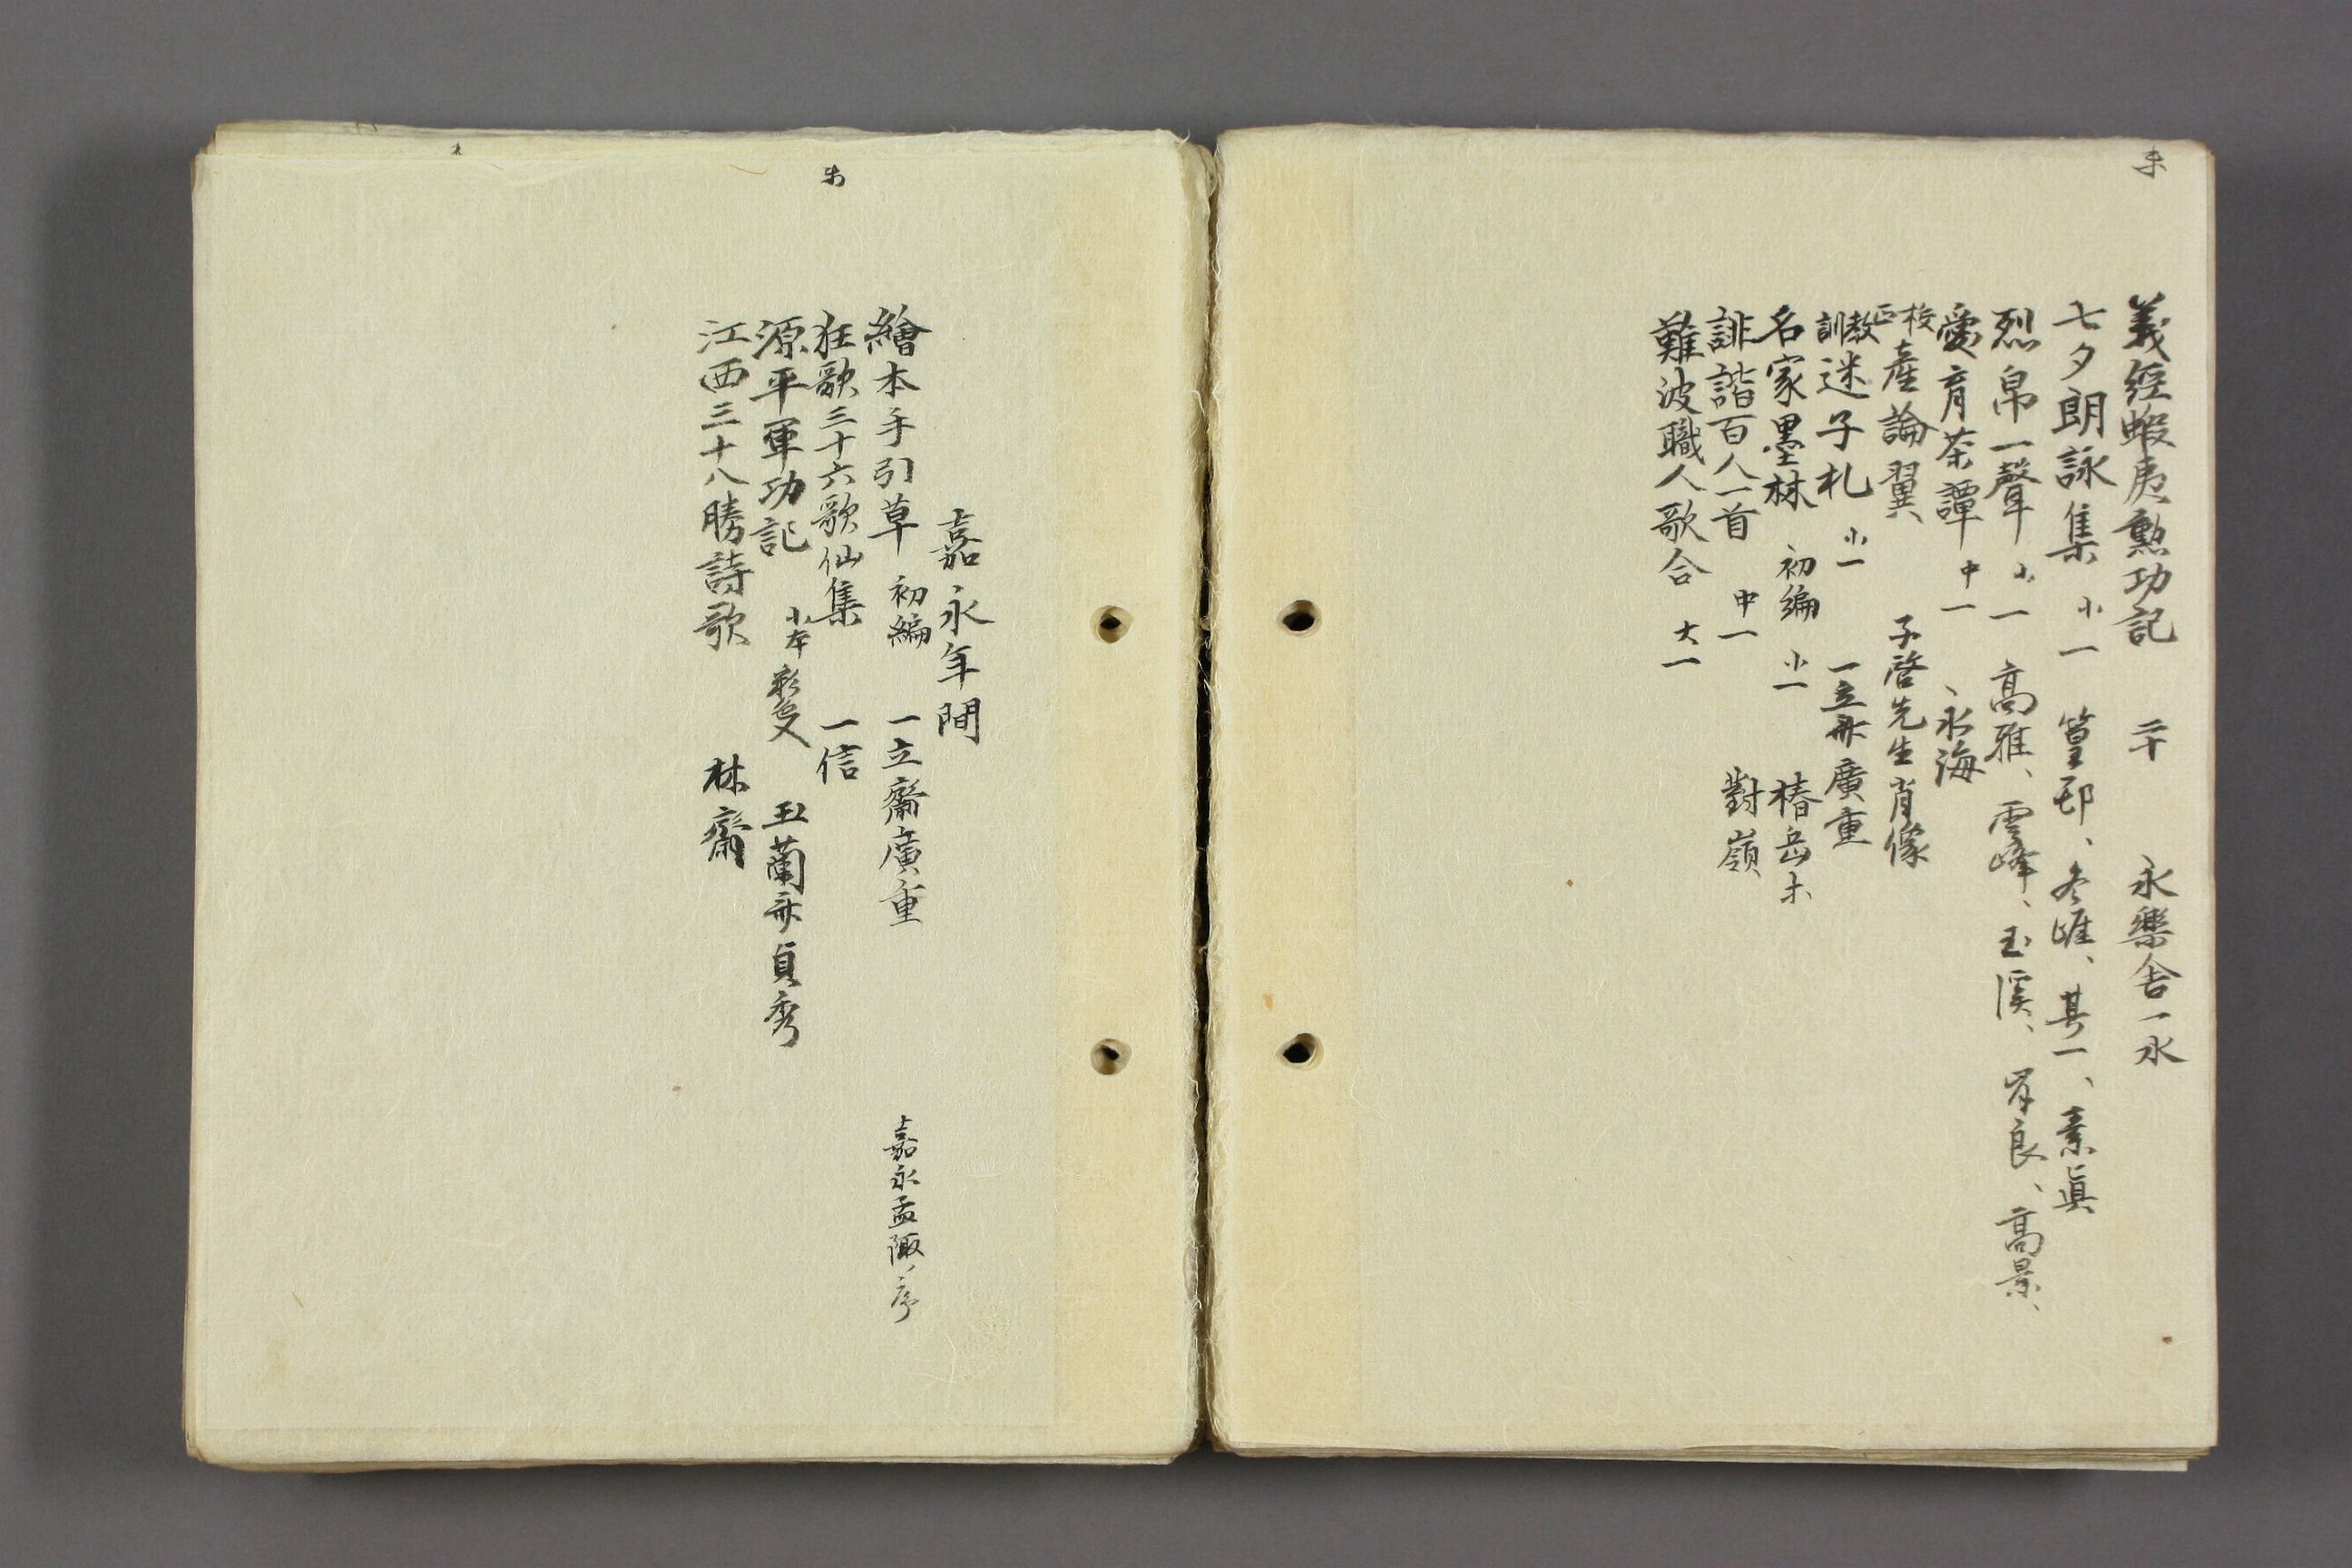 義經蝦夷勲功記 二十 永樂舎一水
七夕朗詠集 小一 篁邨、冬崕、其一、素眞
烈帛一聲 小一 高雅、雲峰、玉溪、良、高景、
愛育茶譚 中一 永海
校正 産論翼 子啓先生肖像
教訓 迷子札 小一 一立斎廣重
名家墨林 初編 小一 椿岳
誹諧百人一首 中一 對嶺
難波職人歌合 大一
嘉永年間
繪本手引草 初編 一立齋廣重 嘉永孟陬ノ序
狂歌三十六歌仙集 一信
源平軍功記 小本 玉蘭斎貞秀
江西三十八勝詩歌 林齋